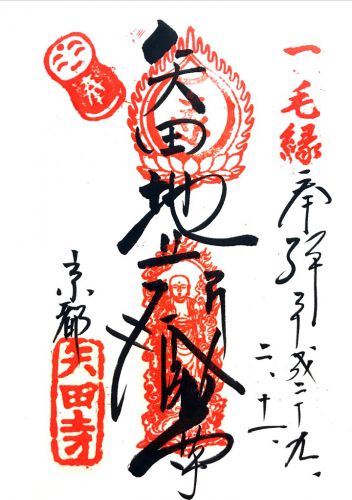 一毛縁
奉拝 平成二十九、
二、十一、
矢田地蔵尊
京都
矢田寺